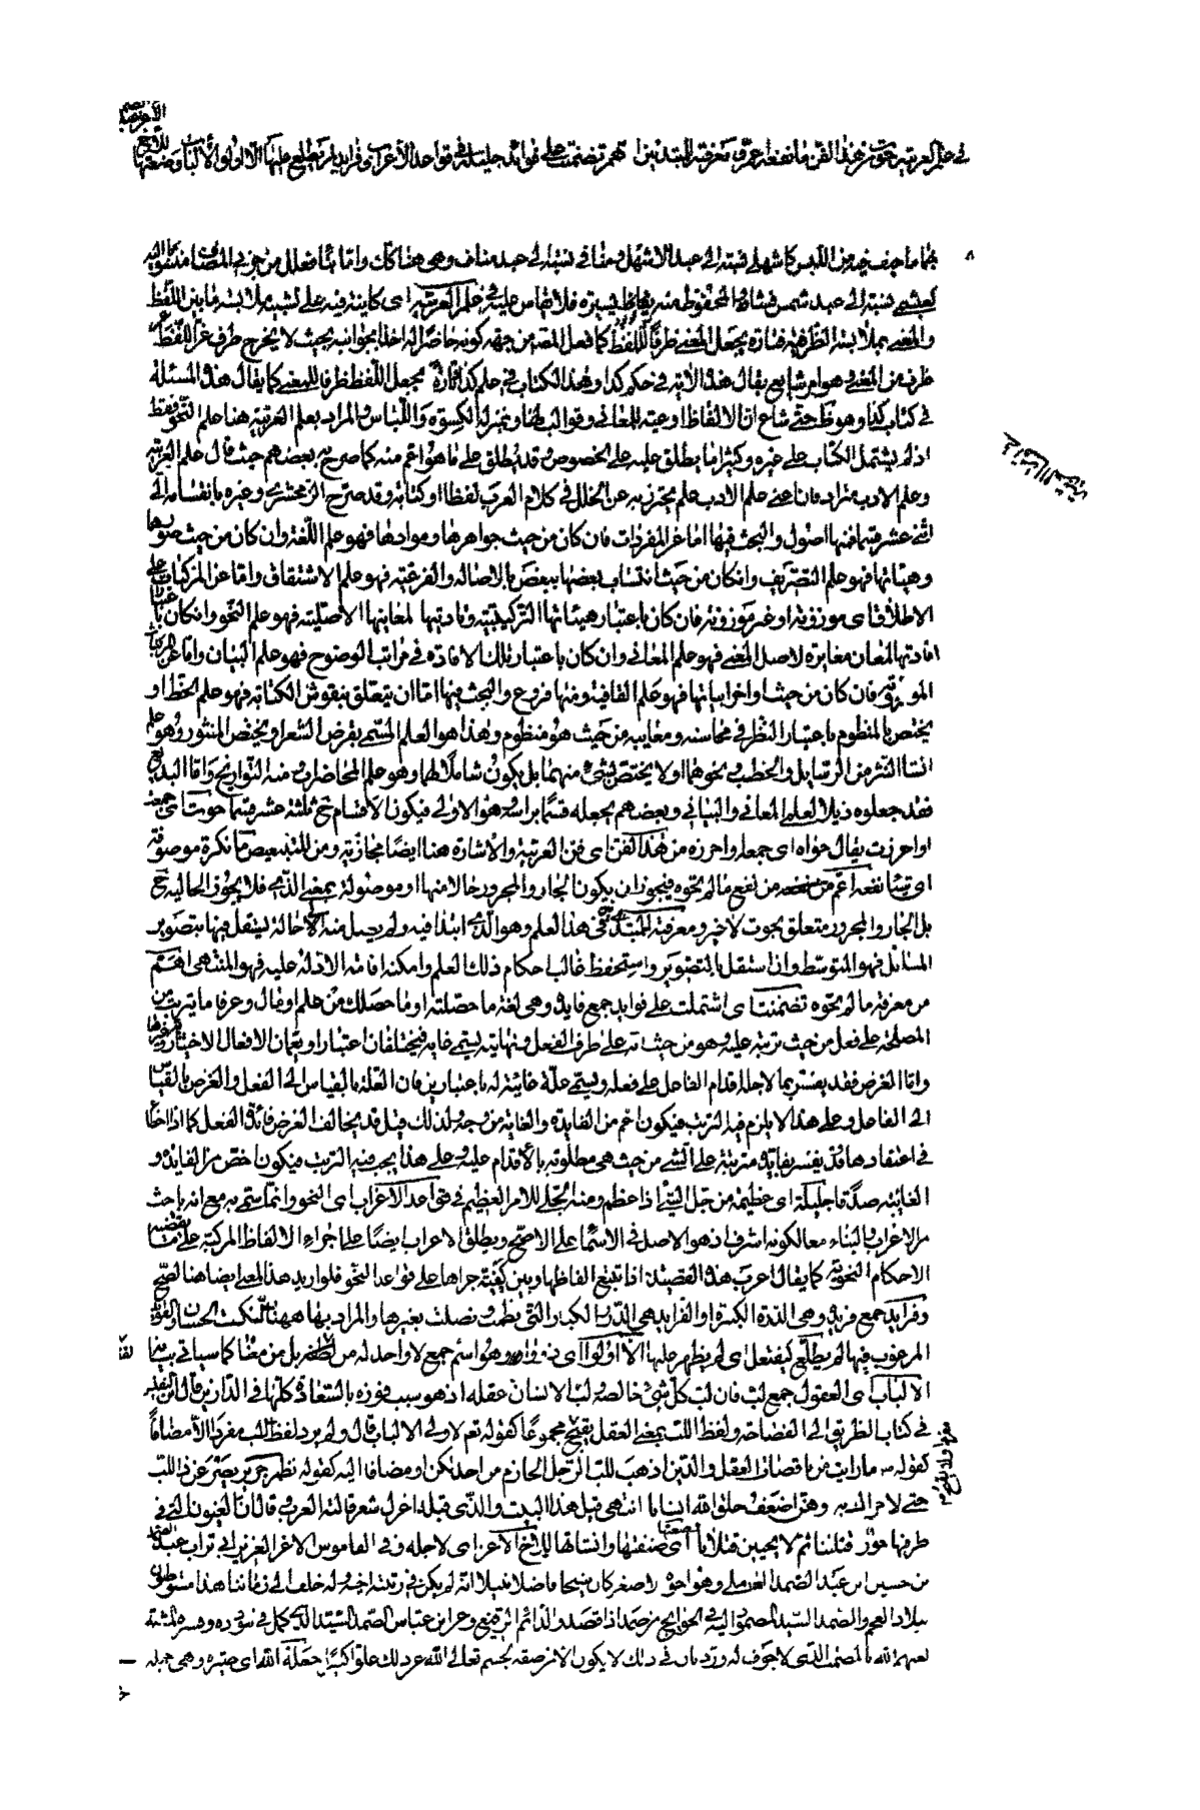 في علم العربية حوت من هذا الفن ما نفعه اعم ومعرفته للمبتدئين اهم تضمنت على فوائد جليلة في قواعد الاعراب وفرايد لم يطلع عليها الا اولو الالباب وضعتها
للاخ
الاعز
فيما ما خيف فيه من اللبس كاشهلي نسبة الى عبد الاشهل ومنافي نسبة الى عبد مناف وهي هنا كان واما بنا فعلل من جزئي المضاف
كعبشمي نسبة الى عبد شمس فشاذ والمحفوظ منه يسيرة فلا يقاس عليه في علم العربية اى كاينة فيه على تشبيه ملابسة ما بين اللفظ
والمعنى بملابسة الظرفية فتارة يجعل المعنى ظرفا للفظ كما فعل المص من جهة كونه حاصرا له اخذا بجوانبه بحيث لا يخرج طرف عن اللفظ
طرف من المعنى وهو امر شايع يقال هذه الآية في حكم كذا وهذا الكتاب في علم كذا وتارة يجعل اللفظ ظرفا للمعنى كما يقال هذه المسئلة
في كتاب كذا وهو ظ حتى شاع ان الالفاظ اوعية للمعاني وقوالب لها وبمنزلة الكسوة واللباس والمراد بعلم العربية هنا علم النحو فقط
اذ لم يشتمل الكتاب على غيره وكثيرا ما يطلق عليه على الخصوص وقد يطلق على ما هو اعم منه كما صرح به بعضهم حيث قال علم العربية
وعلم الادب مترادفان اعني علم الادب علم يحترز به عن الخلل في كلام العرب لفظا او كتابة وقد صرح الزمخشري وغيره بانقسامه الى
اثني عشر قسما فمنها اصول والبحث فيها اما عن المفردات فان كان من حيث جواهرها وموادها فهو علم اللغة وان كان من حيث صورها
وهيئاتها فهو علم التصريف وان كان من حيث انتساب بعضها ببعض بالاصالة والفرعية فهو علم الاشتقاق واما عن المركبات على
الاطلاق اى موزونة او غير موزونة فان كان باعتبار هيئاتها التركيبية وتاديتها لمعانيها الاصلية فهو علم النحو وان كان باعتبار
افادتها لمعان مغايرة لاصل المعنى فهو علم المعاني وان كان باعتبار تلك الافادة في مراتب الوضوح فهو علم البيان واما عن المركبات
الموزونة فان كان من حيث اواخر ابياتها فهو علم القافية ومنها فروع والبحث فيها اما ان يتعلق بنقوش الكتابة فهو علم الخط او
يختص بالمنظوم باعتبار النظر في محاسنه ومعايبه من حيث هو منظوم وهذا هو العلم المسمى بقرض الشعر او يختص المنثور وهو علم
انشا النثر من الرسايل والخطب ونحوها او لا يختص بشئ منهما بل يكون شاملا لهما وهو علم المحاضرات ومنه التواريخ واما البديع
فقد جعلوه ذيلا لعلمي المعاني والبيان وبعضهم يجعله قسما براسه وهو الاولى فيكون الاقسام ح ثلثة عشر قسما حوت اى جمعت
او احرزت يقال حواه اى جمعه واحرزه من هذا الفن اى فن العربية والاشارة هنا ايضا مجازية ومن للتبعيض ما نكرة موصوفة
اى شيئا نفعه اعم من نفع ما لم تحوه فيجوز ان يكون الجار والمجرور حالا منها او موصولة بمعنى الذي فلا يجوز الحالية ح
بل الجار والمجرور متعلق بحوت لا غير ومعرفته للمبتدئ في هذا العلم وهو الذي ابتدا فيه ولم يصل منه الى حالة يستقل فيها بتصوير
المسائل فهو المتوسط وان استقل بالتصوير واستحفظ غالب احكام ذلك العلم وامكنه اقامة الادلة عليه فهو المنتهي اهم
من معرفة ما لم تحوه تضمنت اى اشتملت على فوايد جمع فايدة وهي لغة ما حصلته او ما حصل لك من علم او مال وعرفا ما يترتب من
المصلحة على فعل من حيث ترتبه عليه وهو من حيث انه على طرف الفعل ونهايته يسمى غاية فيختلفان اعتبارا ويعمان الافعال الاختيارية وغيرها
واما الغرض فقد يفسر بما لاجله اقدام الفاعل على فعله ويسمى علة غائية له باعتبارين فان العلة بالقياس الى الفعل والغرض بالقياس
الى الفاعل وعلى هذا لا يلزم فيه الترتب فيكون اعم من الفايدة والغاية من وجه ولذلك قيل قد يخالف الغرض فائدة الفعل كما اذا اخطا
في اعتقادها وقد يفسر بفايدة مترتبة على الشئ من حيث هي مطلوبة بالاقدام عليه وعلى هذا يجب فيه الترتب فيكون اخص من الفايدة و
الغاية صدقا جليلة اى عظيمة من جل الشئ اذا عظم ومنه الجلى للامر العظيم في قواعد الاعراب اى النحو وانما سمي به مع انه باحث
من الاعراب والبناء معا لكونه اشرف اذ هو الاصل في الاسما على الاصح ويطلق الاعراب ايضا على اجراء الالفاظ المركبة على ما تقتضيه
الاحكام النحوية كما يقال اعرب هذه القصيدة اذا تتبع الفاظها وبين كيفية جراها على قواعد النحو فلو اريد هذا المعنى ايضا هنا لصح
وفرايد جمع فريدة وهي الدرة الكبيرة او الفرايد هي الدرر الكبار التي نظمت وفصلت بغيرها والمراد بها ههنا النكت الحسان والفوائد
المرغوب فيها لم يطلع كيفتعل اى لم يظهر عليها الا اولوا اى ذووا وهو اسم جمع لا واحد له من لفظه بل من معناه كما سياتي بيانه
الالباب اى العقول جمع لب فان لب كل شئ خالصه ولب الانسان عقله اذ هو سبب فوزه بالسعادة كلها في الدارين قال ابن
في كتاب الطريق الى الفصاحة ولفظ اللب بمعنى العقل يقبح مجموعا كقوله تعم لاولي الالباب قال ولم يرد لفظ اللب مفردا الا مضافا
كقوله ص ما رايت من ناقصات العقل والدين اذهب للب الرجل الحازم من احديكن او مضافا اليه كقوله نظم جرير يصرعن ذا اللب
حتى لا حراك به وهن اضعف خلق الله انسانا انتهى قبل هذا البيت والذي قبله اغزل شعر قالته العرب قال ان العيون التي في
طرفها حور قتلننا ثم لا يحيين قتلانا اى صنفتها وانشاتها للاخ الاعز اى لاجله وفي القاموس الاغر العزيز ابي تراب عبد الصمد
بن حسين ابن عبد الصمد العاملي وهو اخوه الاصغر كان شيخا فاضلا نبيلا الا انه لم يكن في رتبة اخيه وله خلف الى زماننا هذا متوطن
ببلاد العجم والصمد السيد المصمود اليه في الحوايج من صمد اذا قصد والدائم الرفيع وعن ابن عباس الصمد السيد الذي كمل في سؤدده وفسره المشبهة
لعنهم الله بالمصمت الذي لا جوف له ورد بان ذلك لا يكون الا من صفة الجسم تعالى الله عن ذلك علوا كبيرا جعله الله اى صيره وهي جملة